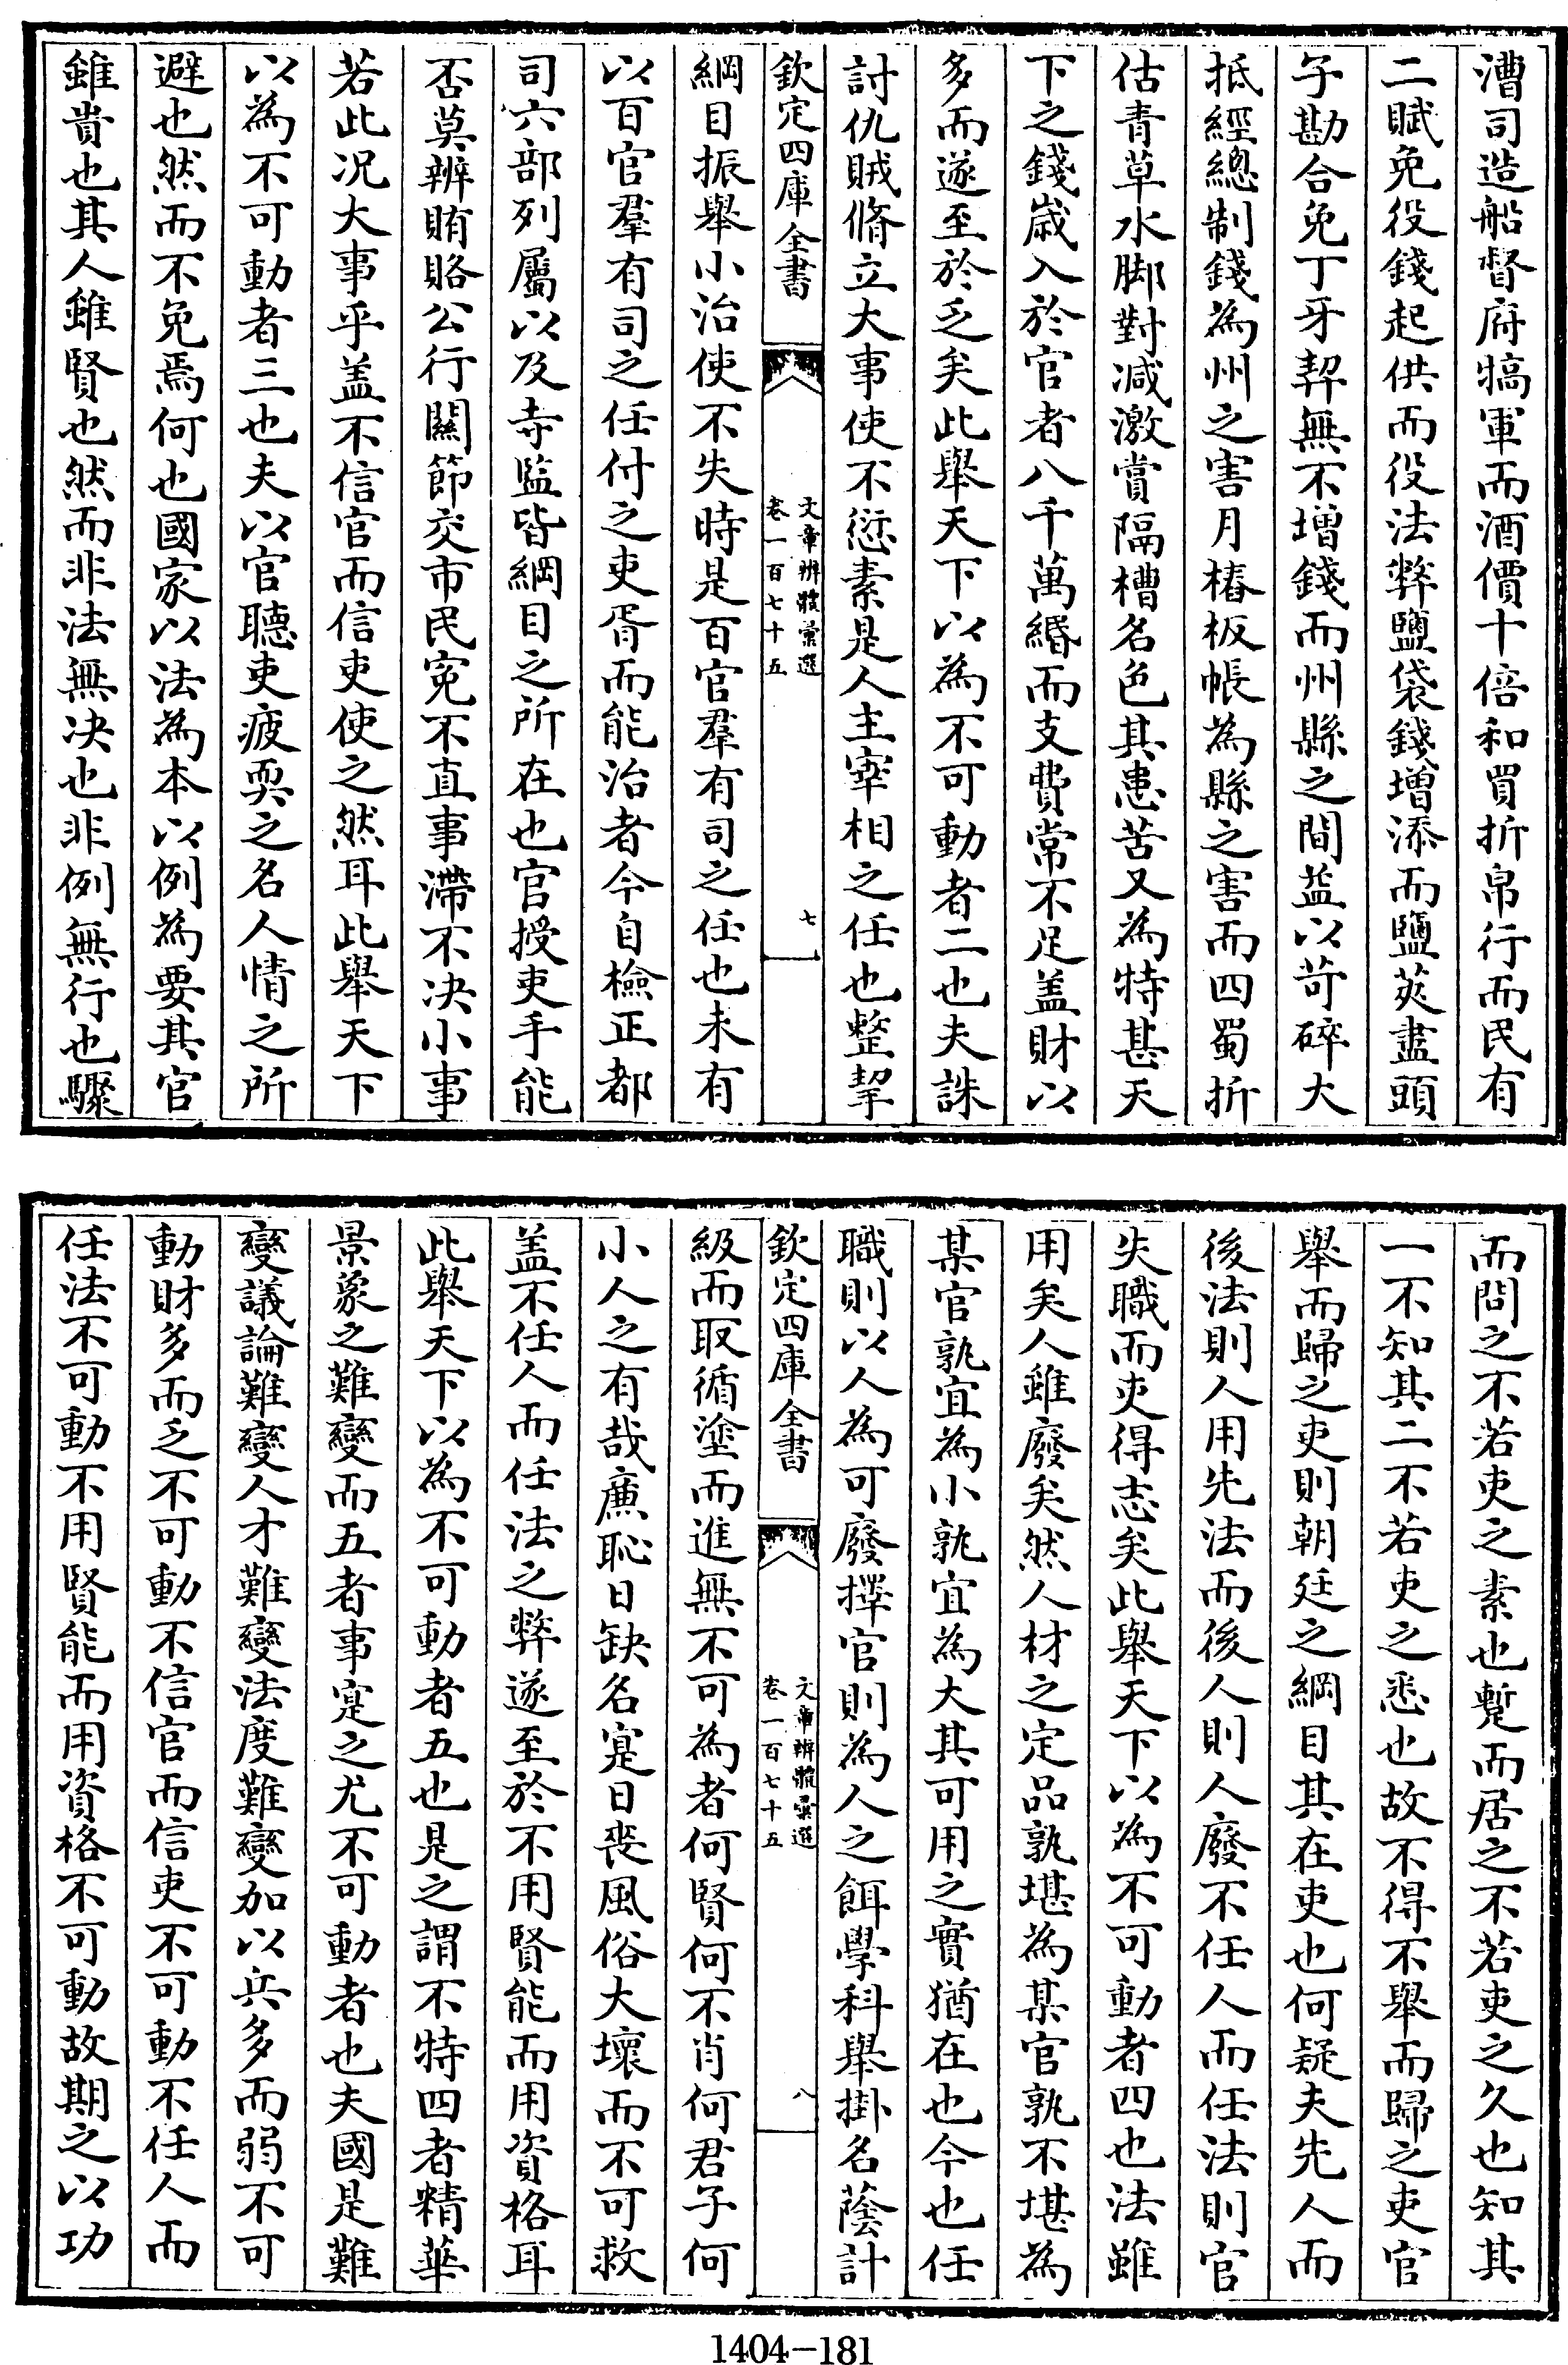 漕司造船督府犒軍而酒價十倍和買折帛行而民有
二賦免役錢起供而役法弊鹽袋錢增添而鹽莢盡頭
子勘合免丁牙契無不增錢而州縣之間益以苛碎大
抵經總制錢為州之害月樁板帳為縣之害而四蜀折
估青草水脚對減激賞隔槽名色其患苦又為特甚天
下之錢歲入於官者八千萬緡而支費常不足盖財以
多而遂至於乏矣此舉天下以為不可動者二也夫誅
討仇賊脩立大事使不愆素是人主宰相之任也整挈
欽定四庫全書
文章辨體彙選
卷一百七十五
七
綱目振舉小治使不失時是百官羣有司之任也未有
以百官羣有司之任付之吏胥而能治者今自檢正都
司六部列屬以及寺監皆綱目之所在也官授吏手能
否莫辨賄賂公行關節交市民寃不直事滯不决小事
若此况大事乎盖不信官而信吏使之然耳此舉天下
以為不可動者三也夫以官聽吏疲耎之名人情之所
避也然而不免焉何也國家以法為本以例為要其官
雖貴也其人雖賢也然而非法無决也非例無行也驟
而問之不若吏之素也蹔而居之不若吏之久也知其
一不知其二不若吏之悉也故不得不舉而歸之吏官
舉而歸之吏則朝廷之綱目其在吏也何疑夫先人而
後法則人用先法而後人則人廢不任人而任法則官
失職而吏得志矣此舉天下以為不可動者四也法雖
用矣人雖廢矣然人材之定品孰堪為某官孰不堪為
某官孰宜為小孰宜為大其可用之實猶在也今也任
職則以人為可廢擇官則為人之餌學科舉掛名蔭計
欽定四庫全書
文章辨體彙選
卷一百七十五
八
級而取循塗而進無不可為者何賢何不肖何君子何
小人之有哉廉恥日缺名寔日喪風俗大壞而不可救
盖不任人而任法之弊遂至於不用賢能而用資格耳
此舉天下以為不可動者五也是之謂不特四者精華
景象之難變而五者事寔之尤不可動者也夫國是難
變議論難變人才難變法度難變加以兵多而弱不可
動財多而乏不可動不信官而信吏不可動不任人而
任法不可動不用賢能而用資格不可動故期之以功
1404-181